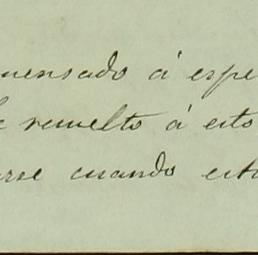 mensado á espe
revuelto á esto
arse cuando esta